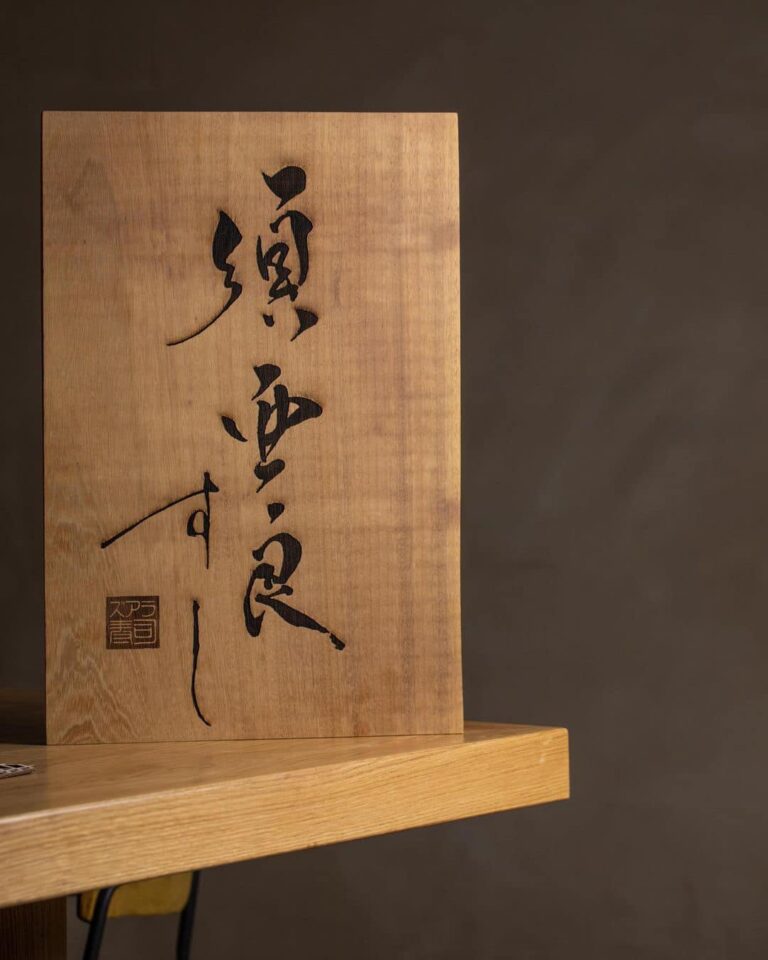 須亜良
すし
スアラ
寿司